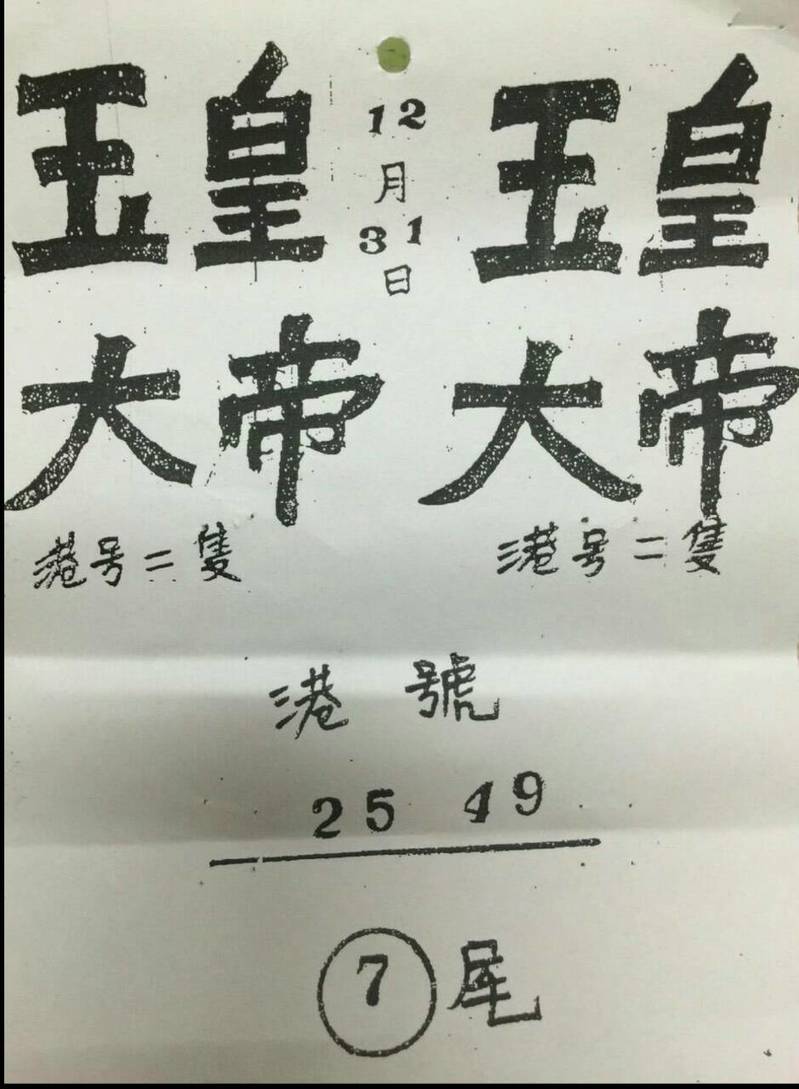 玉皇 12 玉皇
月
31
日
大帝 大帝
港号二隻 港号二隻
港號
25 49
7尾